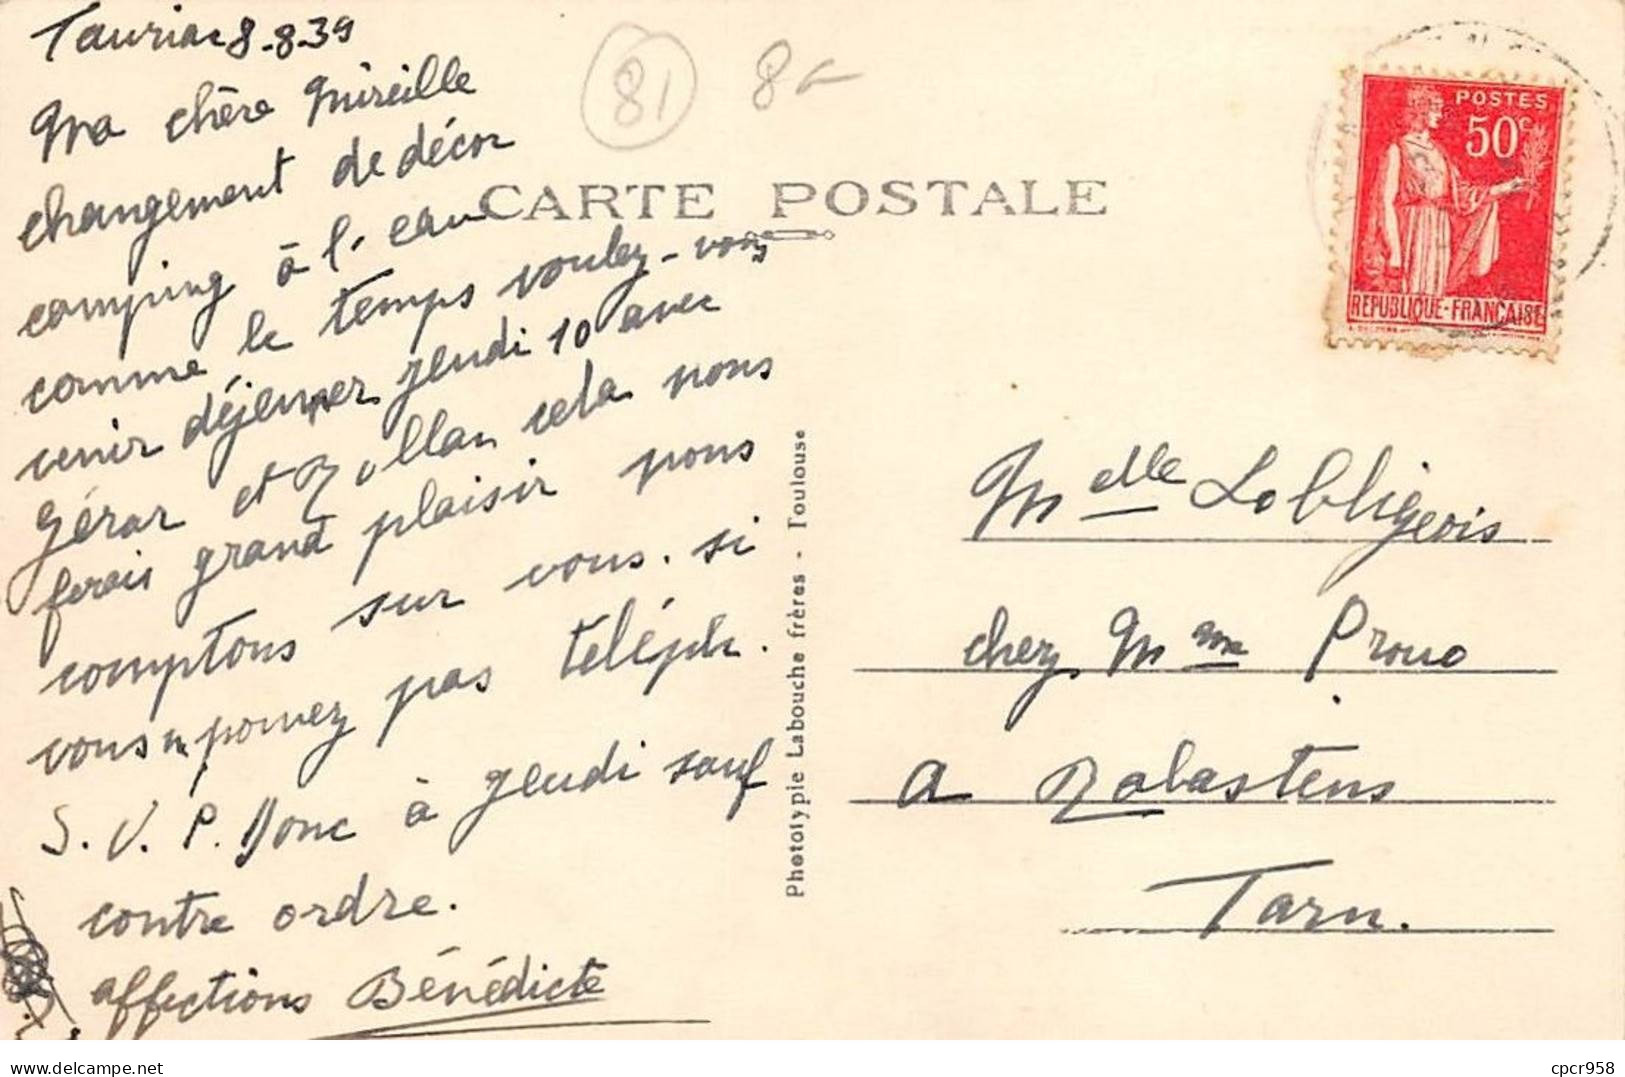 Tauriac 8-8-39
Ma chère Mireille
changement de décor
camping à l'eau
comme le temps voulez-vous
venir déjeuner jeudi 10 avec
Gérar et Rollan cela nous
ferais grand plaisir nous
comptons sur vous. si
vous n pouvez pas téléph.
S. V. P. Donc à jeudi sauf
contre ordre.
affections Bénédicte
81
8€
CARTE POSTALE
Phototypie Labouche frères - Toulouse
POSTES
50c
REPUBLIQUE-FRANÇAISE
Mdelle Lobligeois
chez Mme Prouo
a Rabastens
Tarn.
delcampe.net
cpcr958